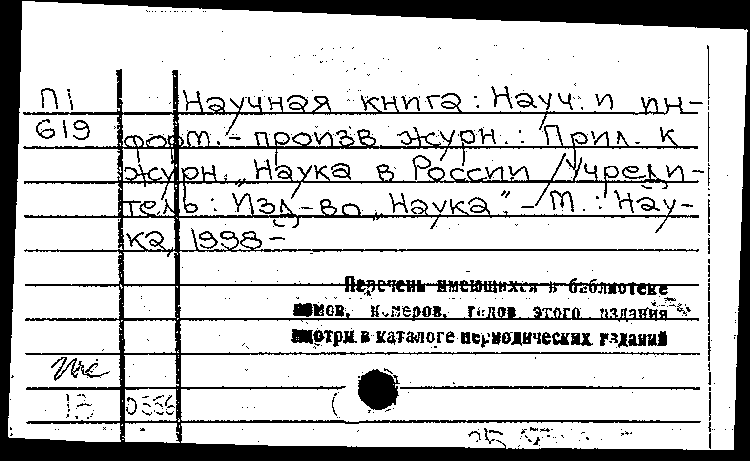 П1 Научная книга: Науч. и ин-
619 форм.-произв. журн.: Прил. к
журн. „Наука в России / Учреди-
тель: Изд-во „Наука“. - М.: Нау-
ка, 1998-
Перечень имеющихся в библиотеке
томов, номеров, годов этого издания
смотри в каталоге периодических изданий
13 0556